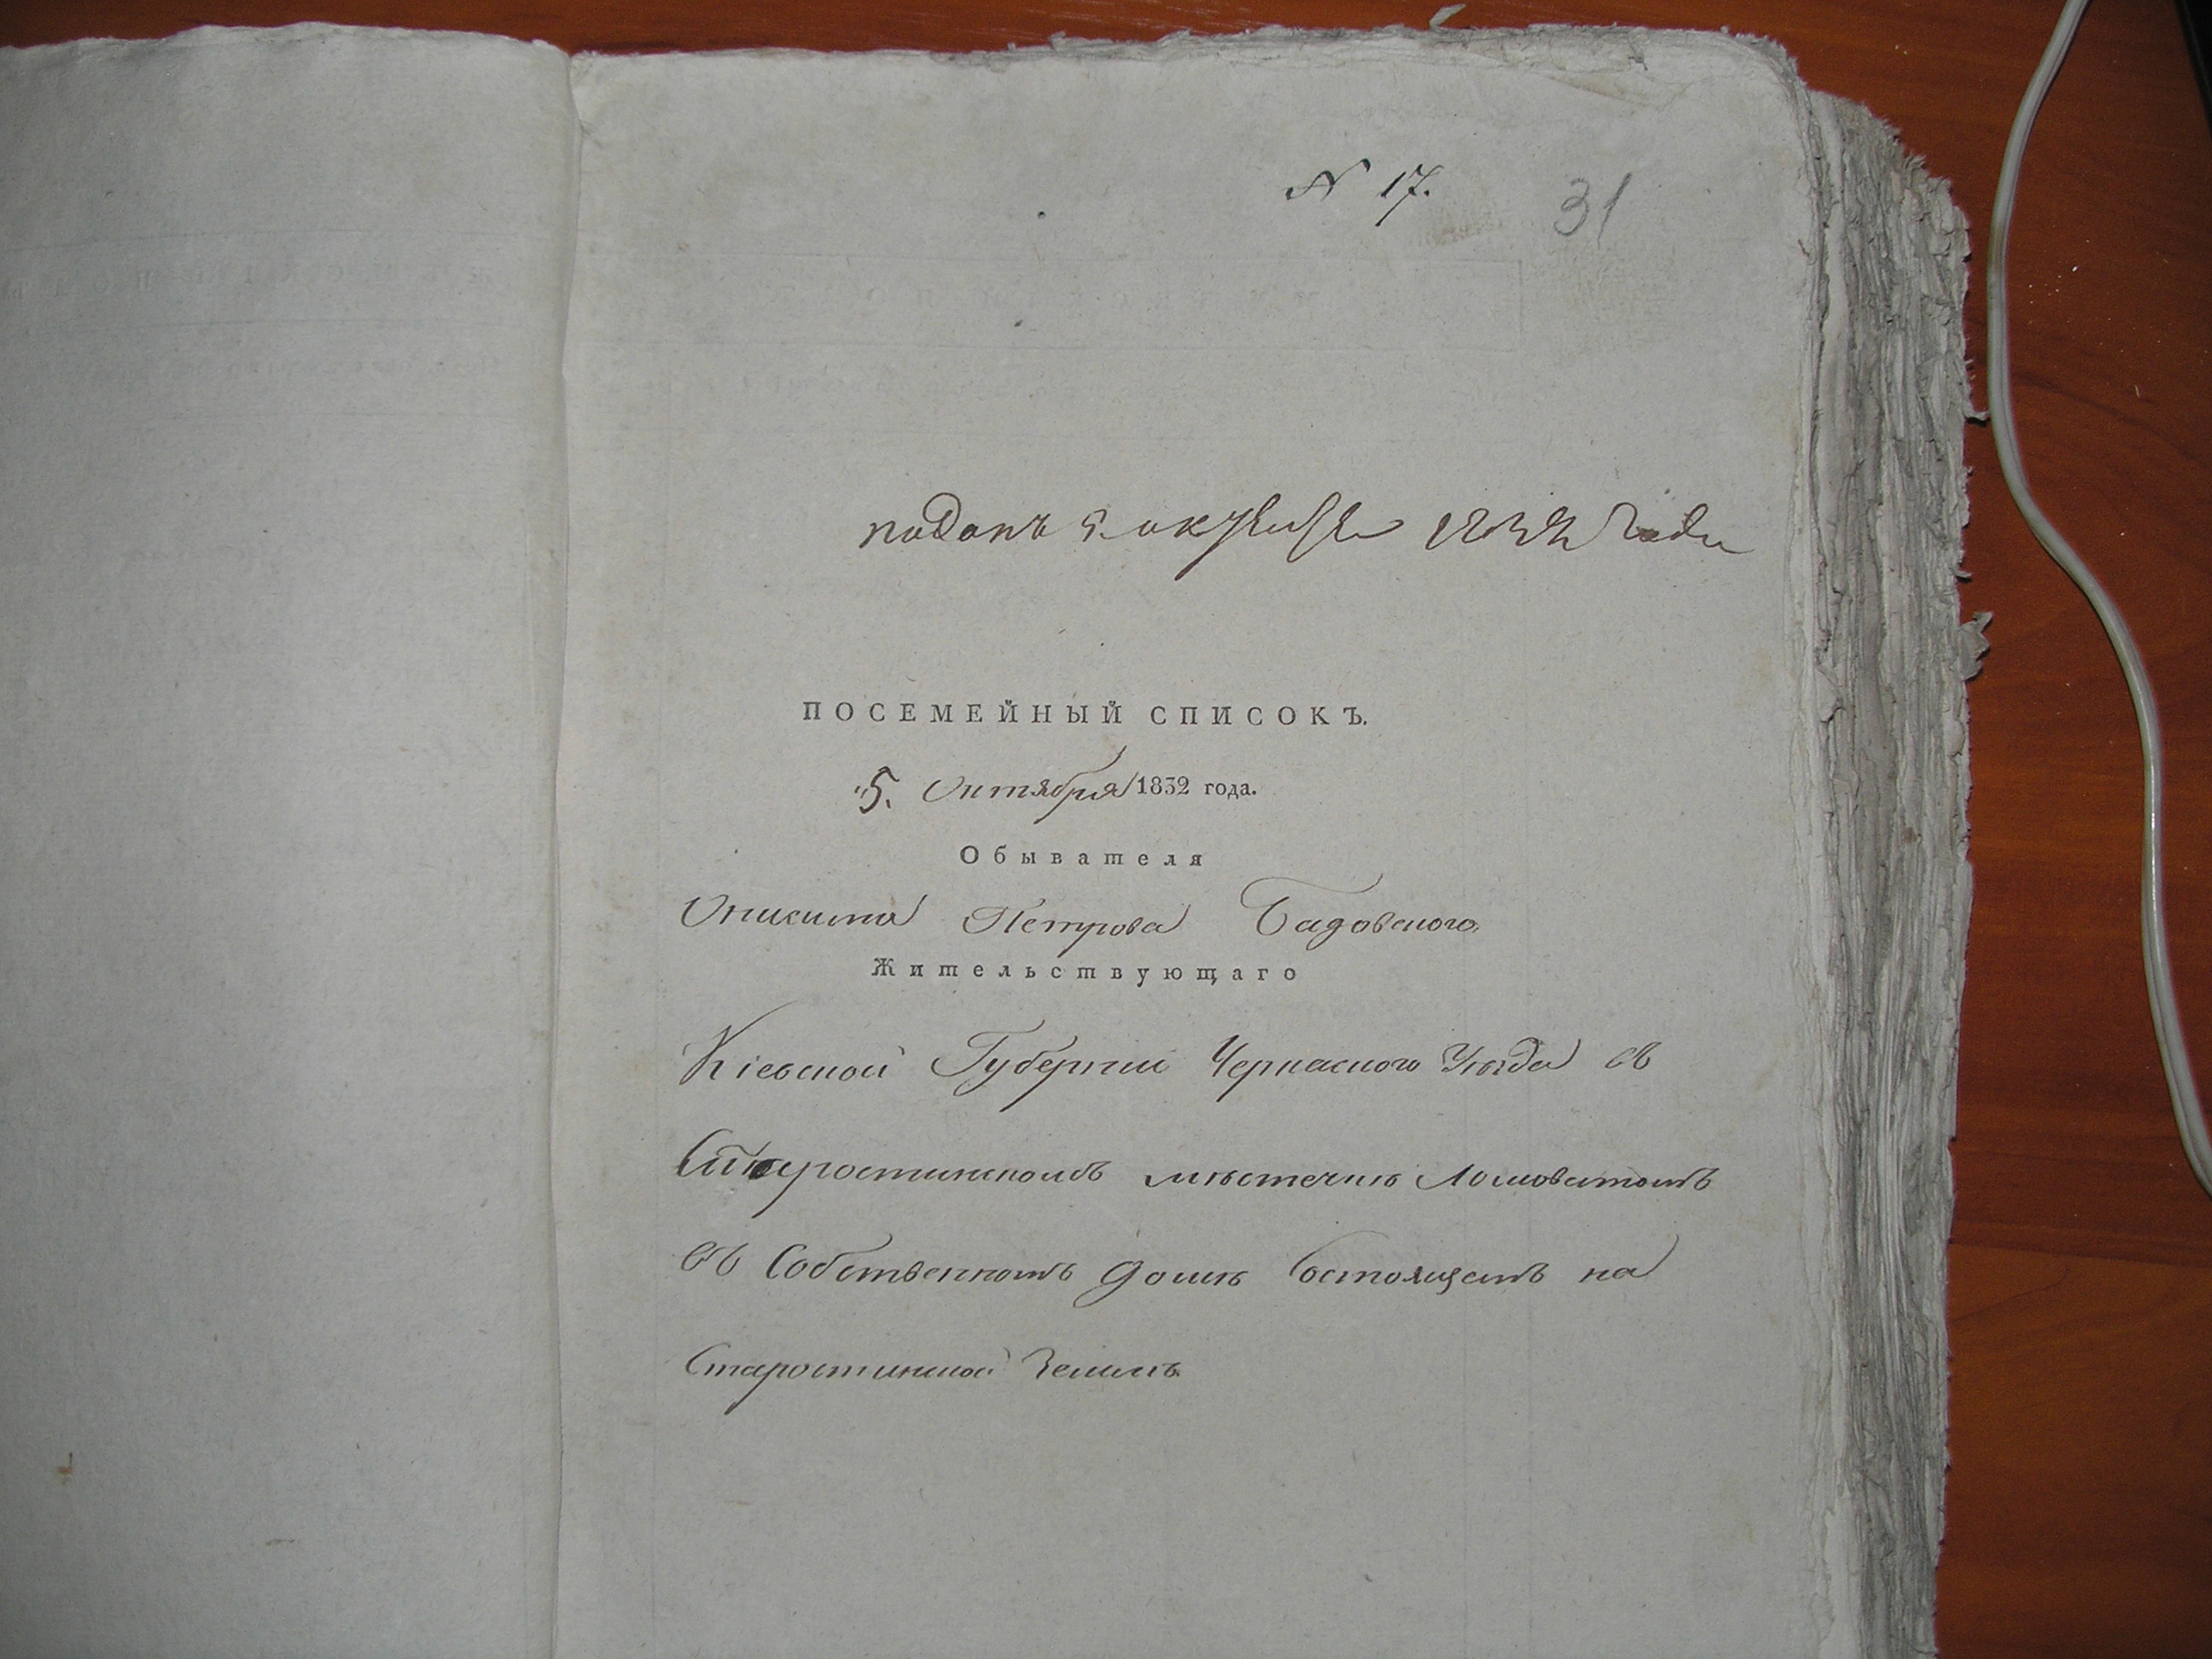 N 17.
31
поданъ 5. октября 1832 года
ПОСЕМЕЙНЫЙ СПИСОКЪ.
"5. Октября 1832 года.
Обывателя
Онисима Петрова Бадовского.
Жительствующаго
Кіевской Губерніи Черкаского Уѣзда въ
Старостинскомъ мѣстечкѣ Ломоватомъ
въ Собственномъ домѣ Состоящемъ на
Старостинской Землѣ.